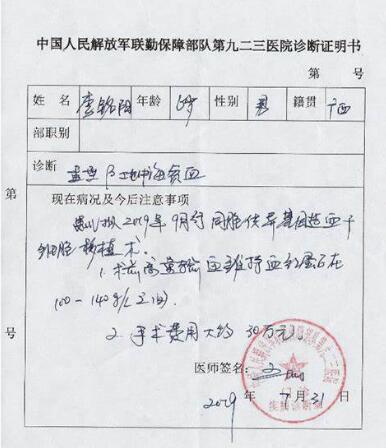 中国人民解放军联勤保障部队第九二三医院诊断证明书
第 号
姓名 唐铭阳 年龄 6岁 性别 男 籍贯 广西
部职别
诊断
重型β地中海贫血
现在病况及今后注意事项
拟 2019年9月行同胞供异基因造血干
细胞移植术。
1. 术前高量输血维持血红蛋白在
100-140g/L
2. 手术费用大约30万元
医师签名:
2019年7月31日
第 号
疾病诊断